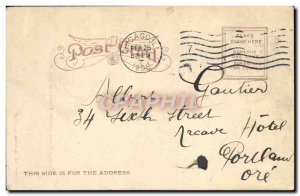 Post Card
CHICAGO, ILL.
PLACE
STAMP HERE
DOMESTIC
Albert Gautier
34 Sixth Street
Arcave Hôtel
Portland
Oré
THIS SIDE IS FOR THE ADDRESS